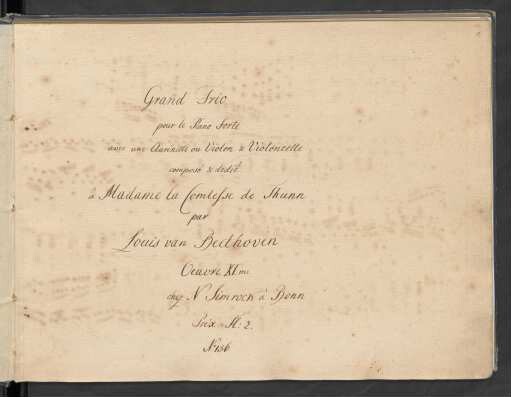 Grand Trio
pour le Piano Forte
avec une Clarinette ou Violon & Violoncelle
composé & dedié
à Madame la Comtesse de Thunn
par
Louis van Beethoven
Oeuvre XI me
chez N Simrock à Bonn
Prix fl: 2.
N 136